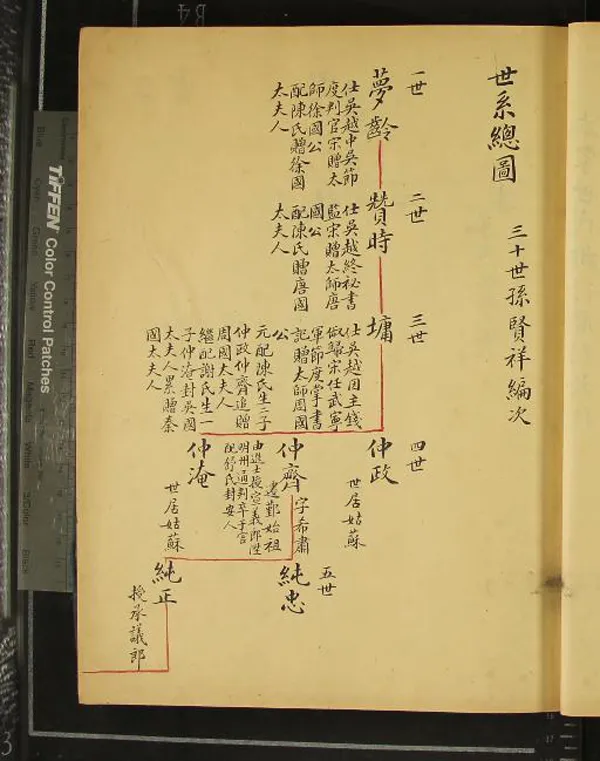 世系總圖
三十世孫賢祥編次
一世
夢齡
仕吳越中吳節
度判官宋贈太
師徐國公
配陳氏贈徐國
太夫人
二世
贊時
仕吳越終祕書
監宋贈太師唐
國公
配陳氏贈唐國
太夫人
三世
墉
仕吳越因主錢
俶歸宋任武寧
軍節度掌書
記贈太師周國
公
元配陳氏生二子
仲政仲齊追贈
周國太夫人
繼配謝氏生一
子仲淹封吳國
太夫人累贈秦
國太夫人
四世
仲政
世居姑蘇
仲齊
字希肅
遷鄞始祖
由進士授宣義郎陞
明州通判卒于官
配舒氏封安人
仲淹
世居姑蘇
五世
純忠
純正
授承議郎
TIFFEN Color Control Patches
Blue
Cyan
Green
Yellow
Red
Magenta
White
3/Color
Black